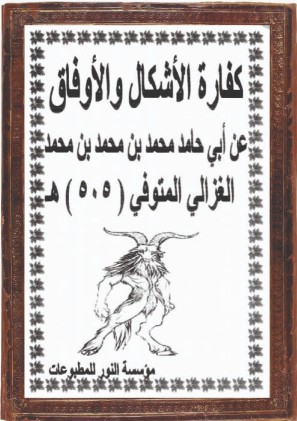 كفارة الأشكال والأوفاق
عن أبي حامد محمد بن محمد بن محمد
الغزالي المتوفي ( ٥٠٥ ) هـ
مؤسسة النور للمطبوعات